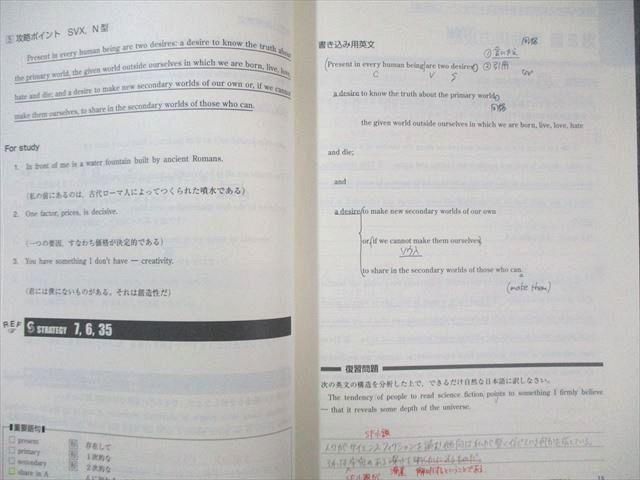 ⑤ 攻略ポイント SVX, N 型
Present in every human being are two desires: a desire to know the truth about
the primary world, the given world outside ourselves in which we are born, live, love,
hate and die; and a desire to make new secondary worlds of our own or, if we cannot
make them ourselves, to share in the secondary worlds of those who can.
For study
1. In front of me is a water fountain built by ancient Romans.
(私の前にあるのは，古代ローマ人によってつくられた噴水である)
2. One factor, prices, is decisive.
(一つの要因，すなわち価格が決定的である)
3. You have something I don't have — creativity.
(君には僕にないものがある。それは創造性だ)
R.E.F
STRATEGY 7, 6, 35
■重要語句
□ present 形 存在して
□ primary 形 1次的な
□ secondary 形 2次的な
□ share in A
書き込み用英文
同格
① 言いかえ
② 引用
(Present in every human being) are two desires:
C V S
CVS
a desire to know the truth about the primary world,
同格
the given world outside ourselves in which we are born, live, love, hate
and die;
and
a desire to make new secondary worlds of our own
or, (if we cannot make them ourselves),
挿入
to share in the secondary worlds of those who can.
(make them)
復習問題
次の英文の構造を分析した上で，できるだけ自然な日本語に訳しなさい。
The tendency of people to read science fiction points to something I firmly believe
— that it reveals some depth of the universe.
SF小説
15